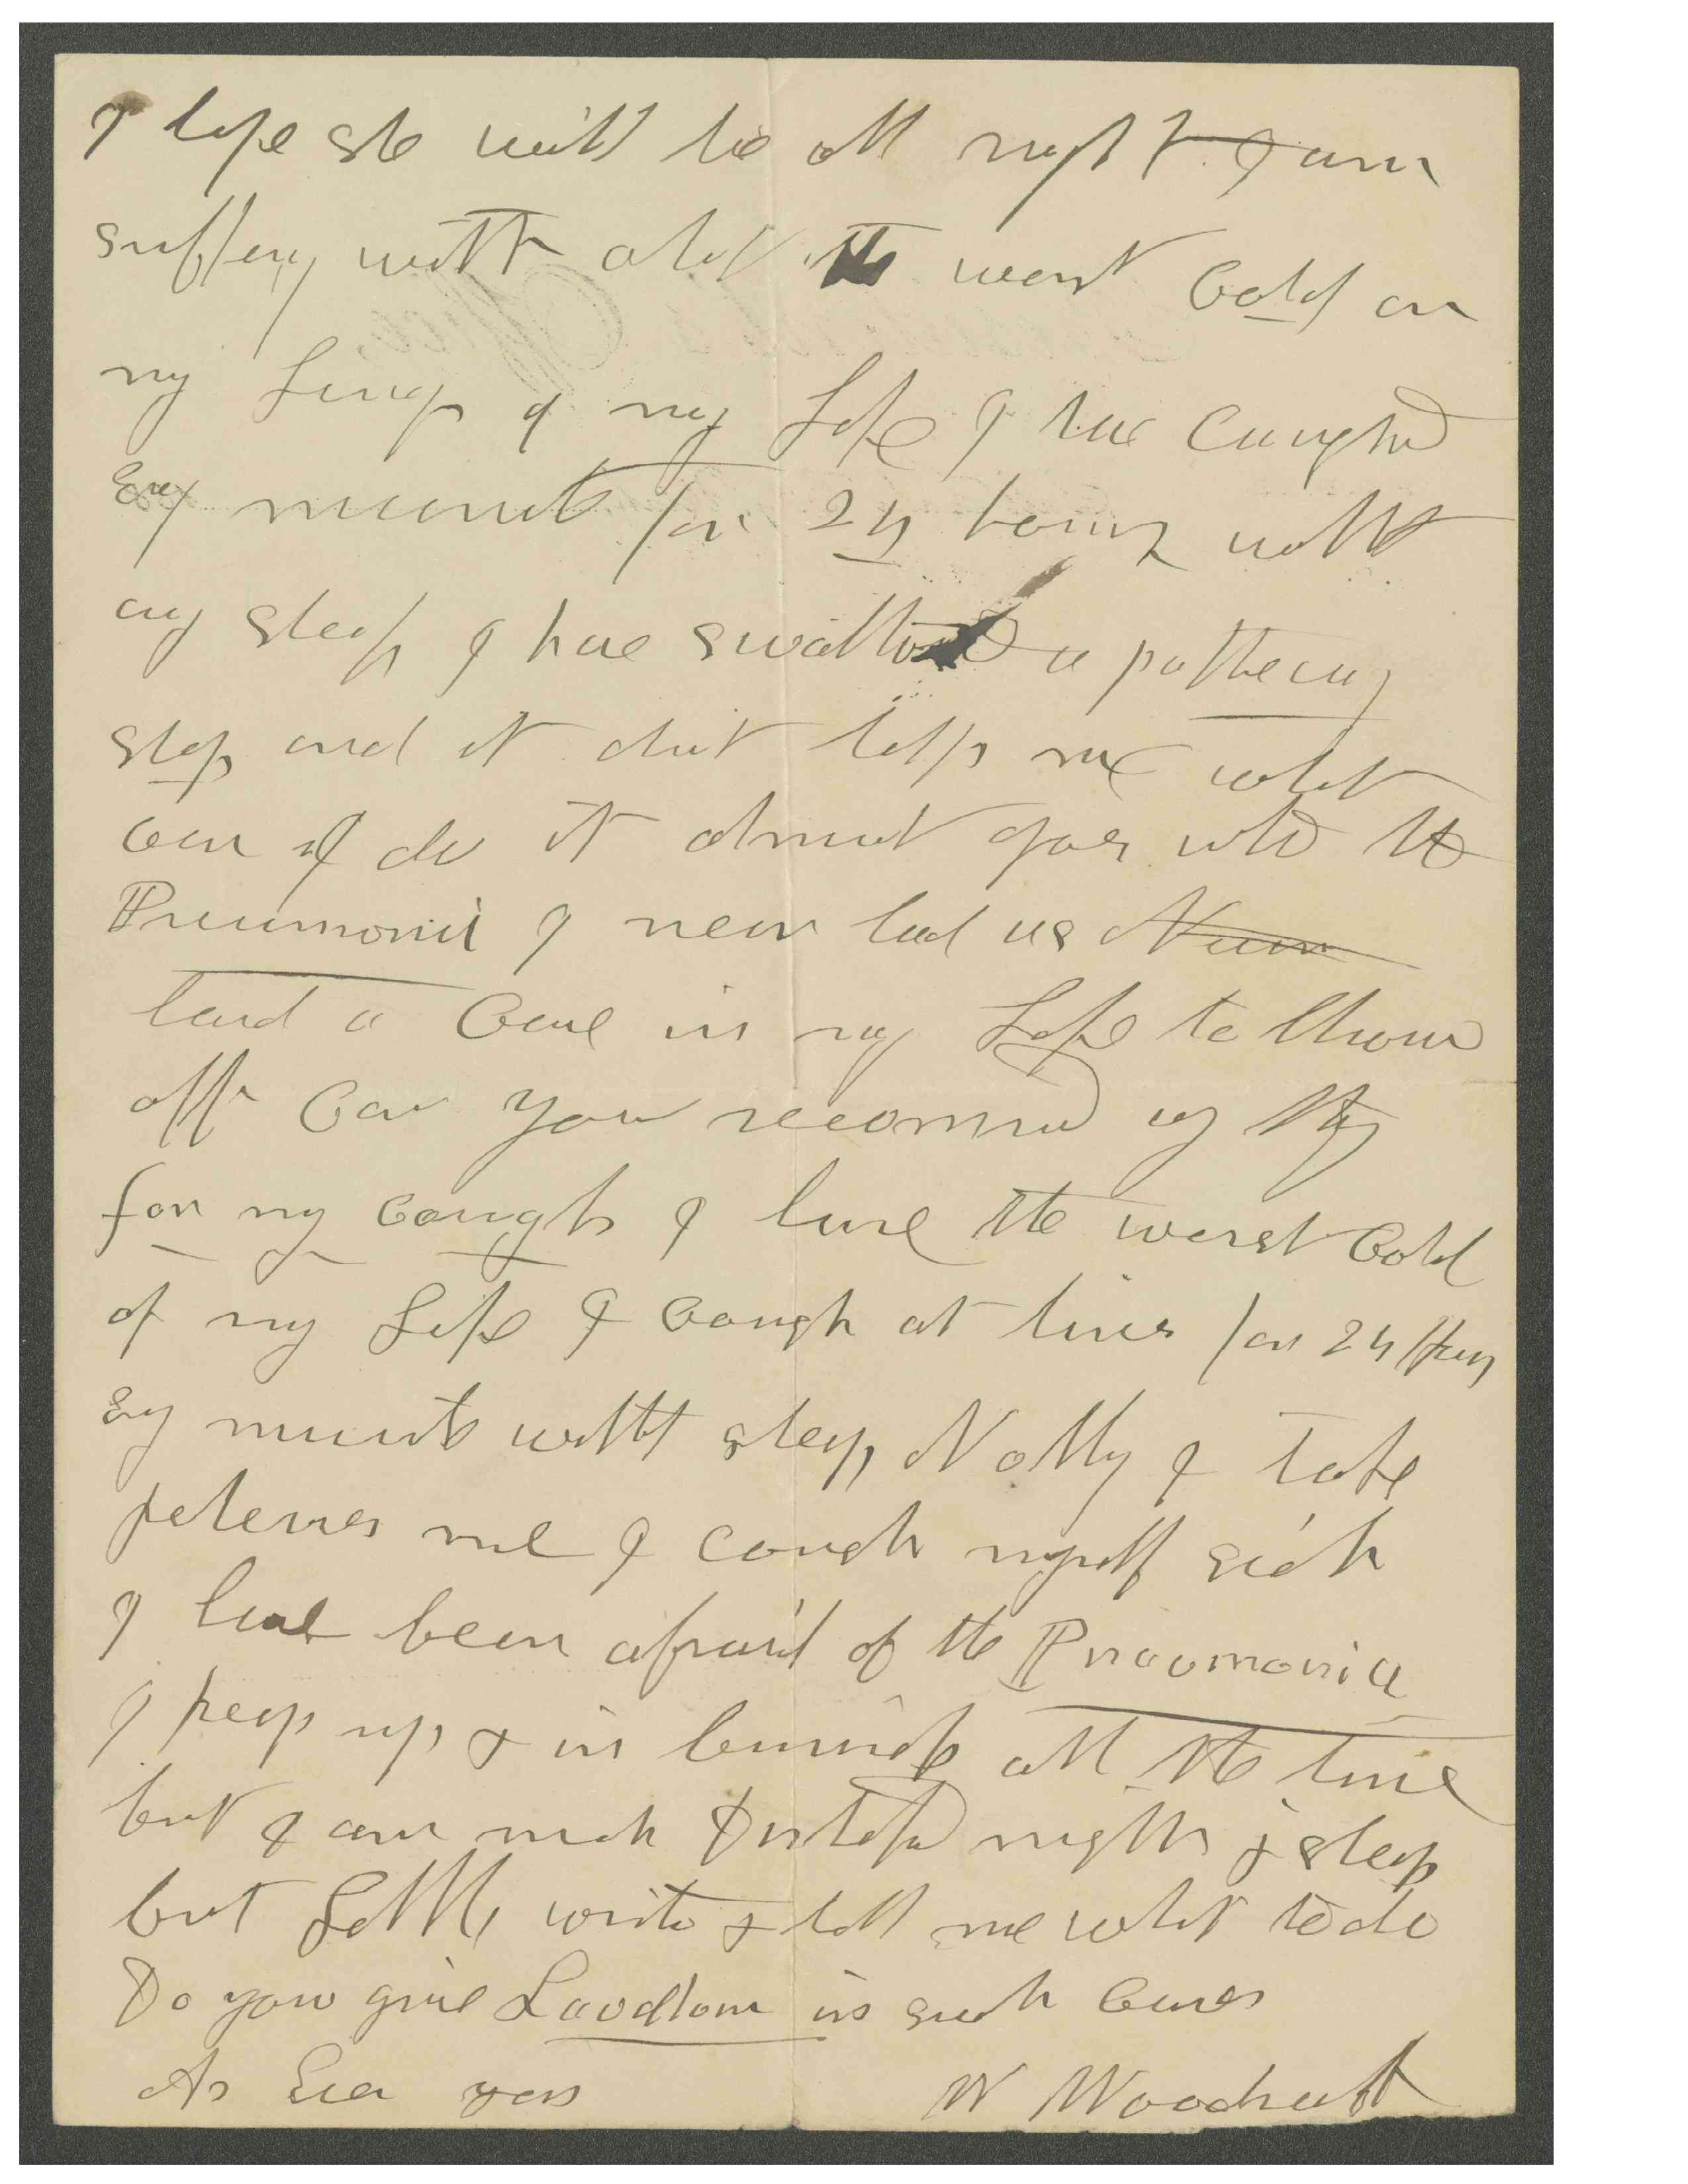 I hope she will be all right I am
suffering with about the worst Cold on
my Lungs of my Life I have Coughed
Every minute for 24 hours without
any sleep I have swallowed a pothecary
shop and it dont help me what
can I do it almost goes into the
Pneumonia I never had us
hard a Case in my Life to throw
off Can you recommend any thing
for my cough I have the worst Cold
of my Life I Cough at times for 24 Hours
Every minute without sleep Nothing I take
relieves me I cough myself sick
I have been afraid of the Pnaumonia
I keep up & in business all the time
but I am much Disturbed nights & sleep
but Little write & tell me what to do
Do you give Laudlom in such Cases
As Ever yours W Woodruff